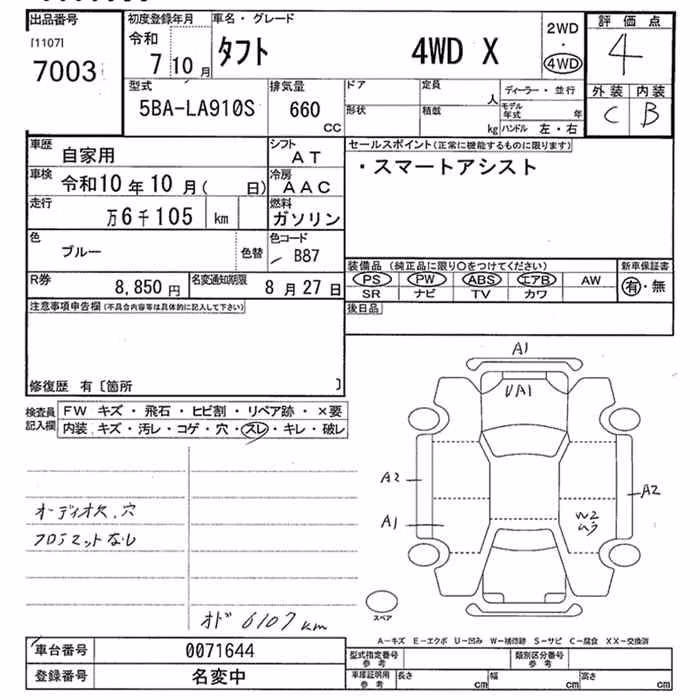 出品番号 初度登録年月 車名・グレード 評価点
[1107] 令和 2WD
7003 7 10月 タフト 4WD X ・ 4WD 4
型式 排気量 ドア 定員 ディーラー・並行 外装 内装
5BA-LA910S 660 CC 形状 積載 人 kg モデル年式 年 ハンドル 左・右 C B
車歴 自家用 シフト AT セールスポイント(正常に機能するものに限ります)
車検 令和10年10月( 日) 冷房 AAC ・スマートアシスト
走行 万6千105 km 燃料 ガソリン
色 ブルー 色替 色コード B87
装備品 (純正品に限り〇をつけてください) 新車保証書
R券 8,850円 名変通知期限 8月27日 PS PW ABS エアB AW 有・無
SR ナビ TV カワ
注意事項申告欄(不具合内容等は具体的に記入して下さい) 後日品
修復歴 有〔箇所 〕
検査員記入欄 FW キズ・飛石・ヒビ割・リペア跡・×要
内装 キズ・汚レ・コゲ・穴・スレ・キレ・破レ
A1
UA1
A2
A2
A1
W2
ムラ
オーディオ欠、穴
フロアマットなし
オド 6107km
スペア
A-キズ E-エクボ U-凹み W-補修跡 S-サビ C-腐食 XX-交換済
車台番号 0071644 型式指定番号 参考 類別区分番号 参考
登録番号 名変中 車庫証明用 参考 長さ cm 幅 cm 高さ cm